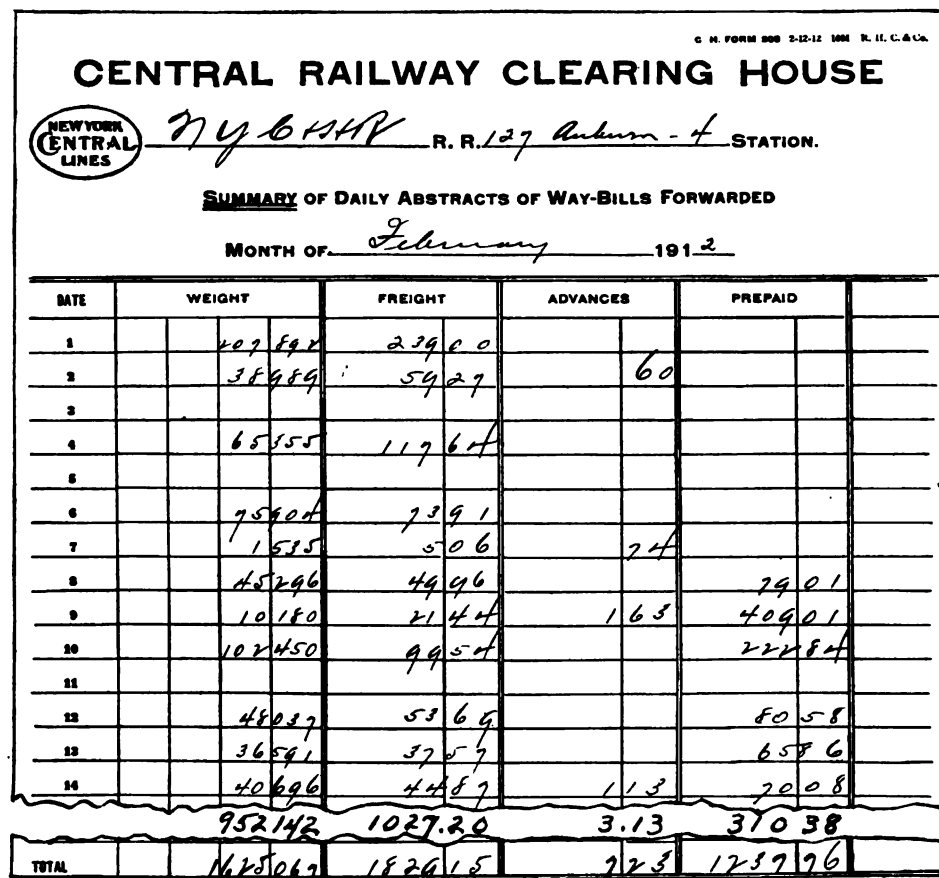 C H. FORM 506 2-12-12 10M R. H. C. & Co.
CENTRAL RAILWAY CLEARING HOUSE
NEW YORK
CENTRAL
LINES
N Y C & H R R. R. 127 Auburn - 4 STATION.
SUMMARY OF DAILY ABSTRACTS OF WAY-BILLS FORWARDED
MONTH OF February 1912
DATE WEIGHT FREIGHT ADVANCES PREPAID
1 207 892 239 00
2 38 989 59 27 60
3
4 65 355 117 64
5
6 75 904 73 91
7 1 535 5 06 74
8 45 296 49 96 79 01
9 10 180 21 44 1 63 409 01
10 102 450 99 54 222 84
11
12 48 037 53 69 80 58
13 36 591 37 57 65 86
14 40 696 44 87 1 13 70 08
952142 1027.20 3.13 310 38
TOTAL 1625 067 1829 15 7 23 1237 76